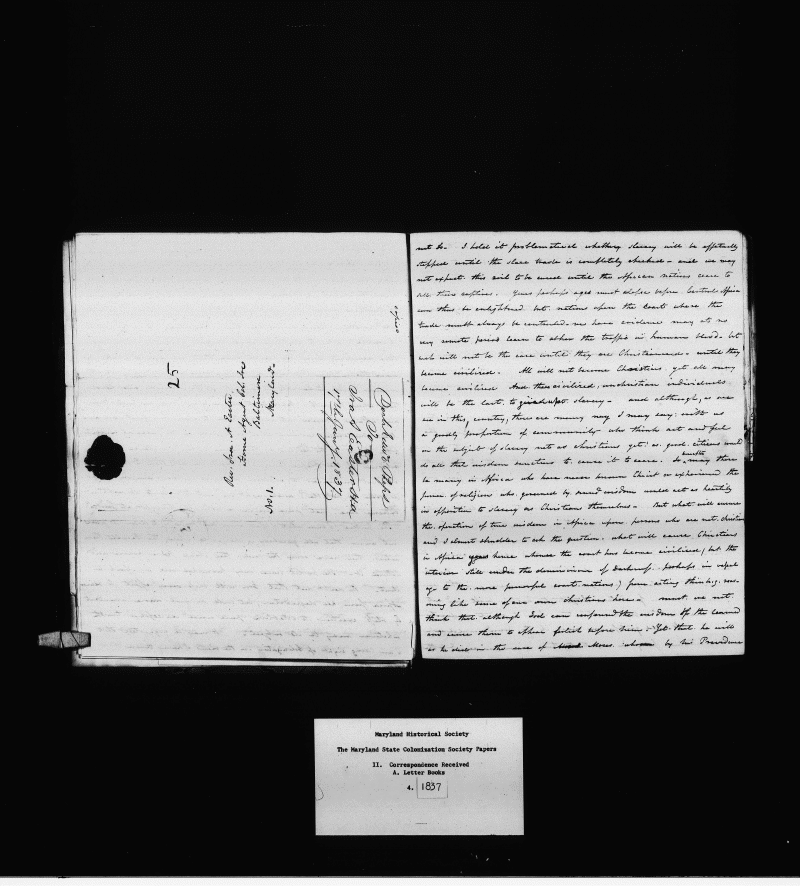 25
Rev. Ira A Easter
Home Agent Col. Soc
Baltimore
Maryland
No. 1.
To
Ira A Easter
1837
not do. I hold it problematical whether slavery will be effectually
stopped until the slave trade is completely checked - and we may
not expect this evil to be cured until the African nations cease to
sell their captives. Years perhaps ages must elapse before Central Africa
can thus be enlightened but nations upon the Coast where the
trade must always be contended - we have evidence may at no
very remote period learn to abhor the traffic in human blood - but
will not be the case until they are Christianized - until they
become civilized. All will not become Christians yet all may
become civilized And these civilized, unchristian individuals
will be the last to give up slavery - and although, as we
see in this country, there are many very I may say; with us
a goodly proportion of community who think act and feel
on the subject of slavery not as Christians yet as good citizens would
do all that wisdom sanctions to cause it to cease. So may there
be many in Africa who have never known Christ or experienced the
power of religion who governed by sound wisdom would act as heartily
in opposition to slavery as Christians themselves. But what will ensure
the operation of true wisdom in Africa upon persons who are not Christian
and I almost shudder to ask the question, what will cause Christians
in Africa years hence when the coast has become civilized, but the
interior still under the dominion of darkness - perhaps in vassal
age to the more powerful coast nations, from acting thinking reas-
oning like some of our own Christians here - must we not
think that although God can confound the wisdom of the learned
and cause them to appear foolish before him - Yet that he will
as he did in the case of Moses whom by his Providence
Maryland Historical Society
The Maryland State Colonization Society Papers
II. Correspondence Received
A. Letter Books
4. 1837